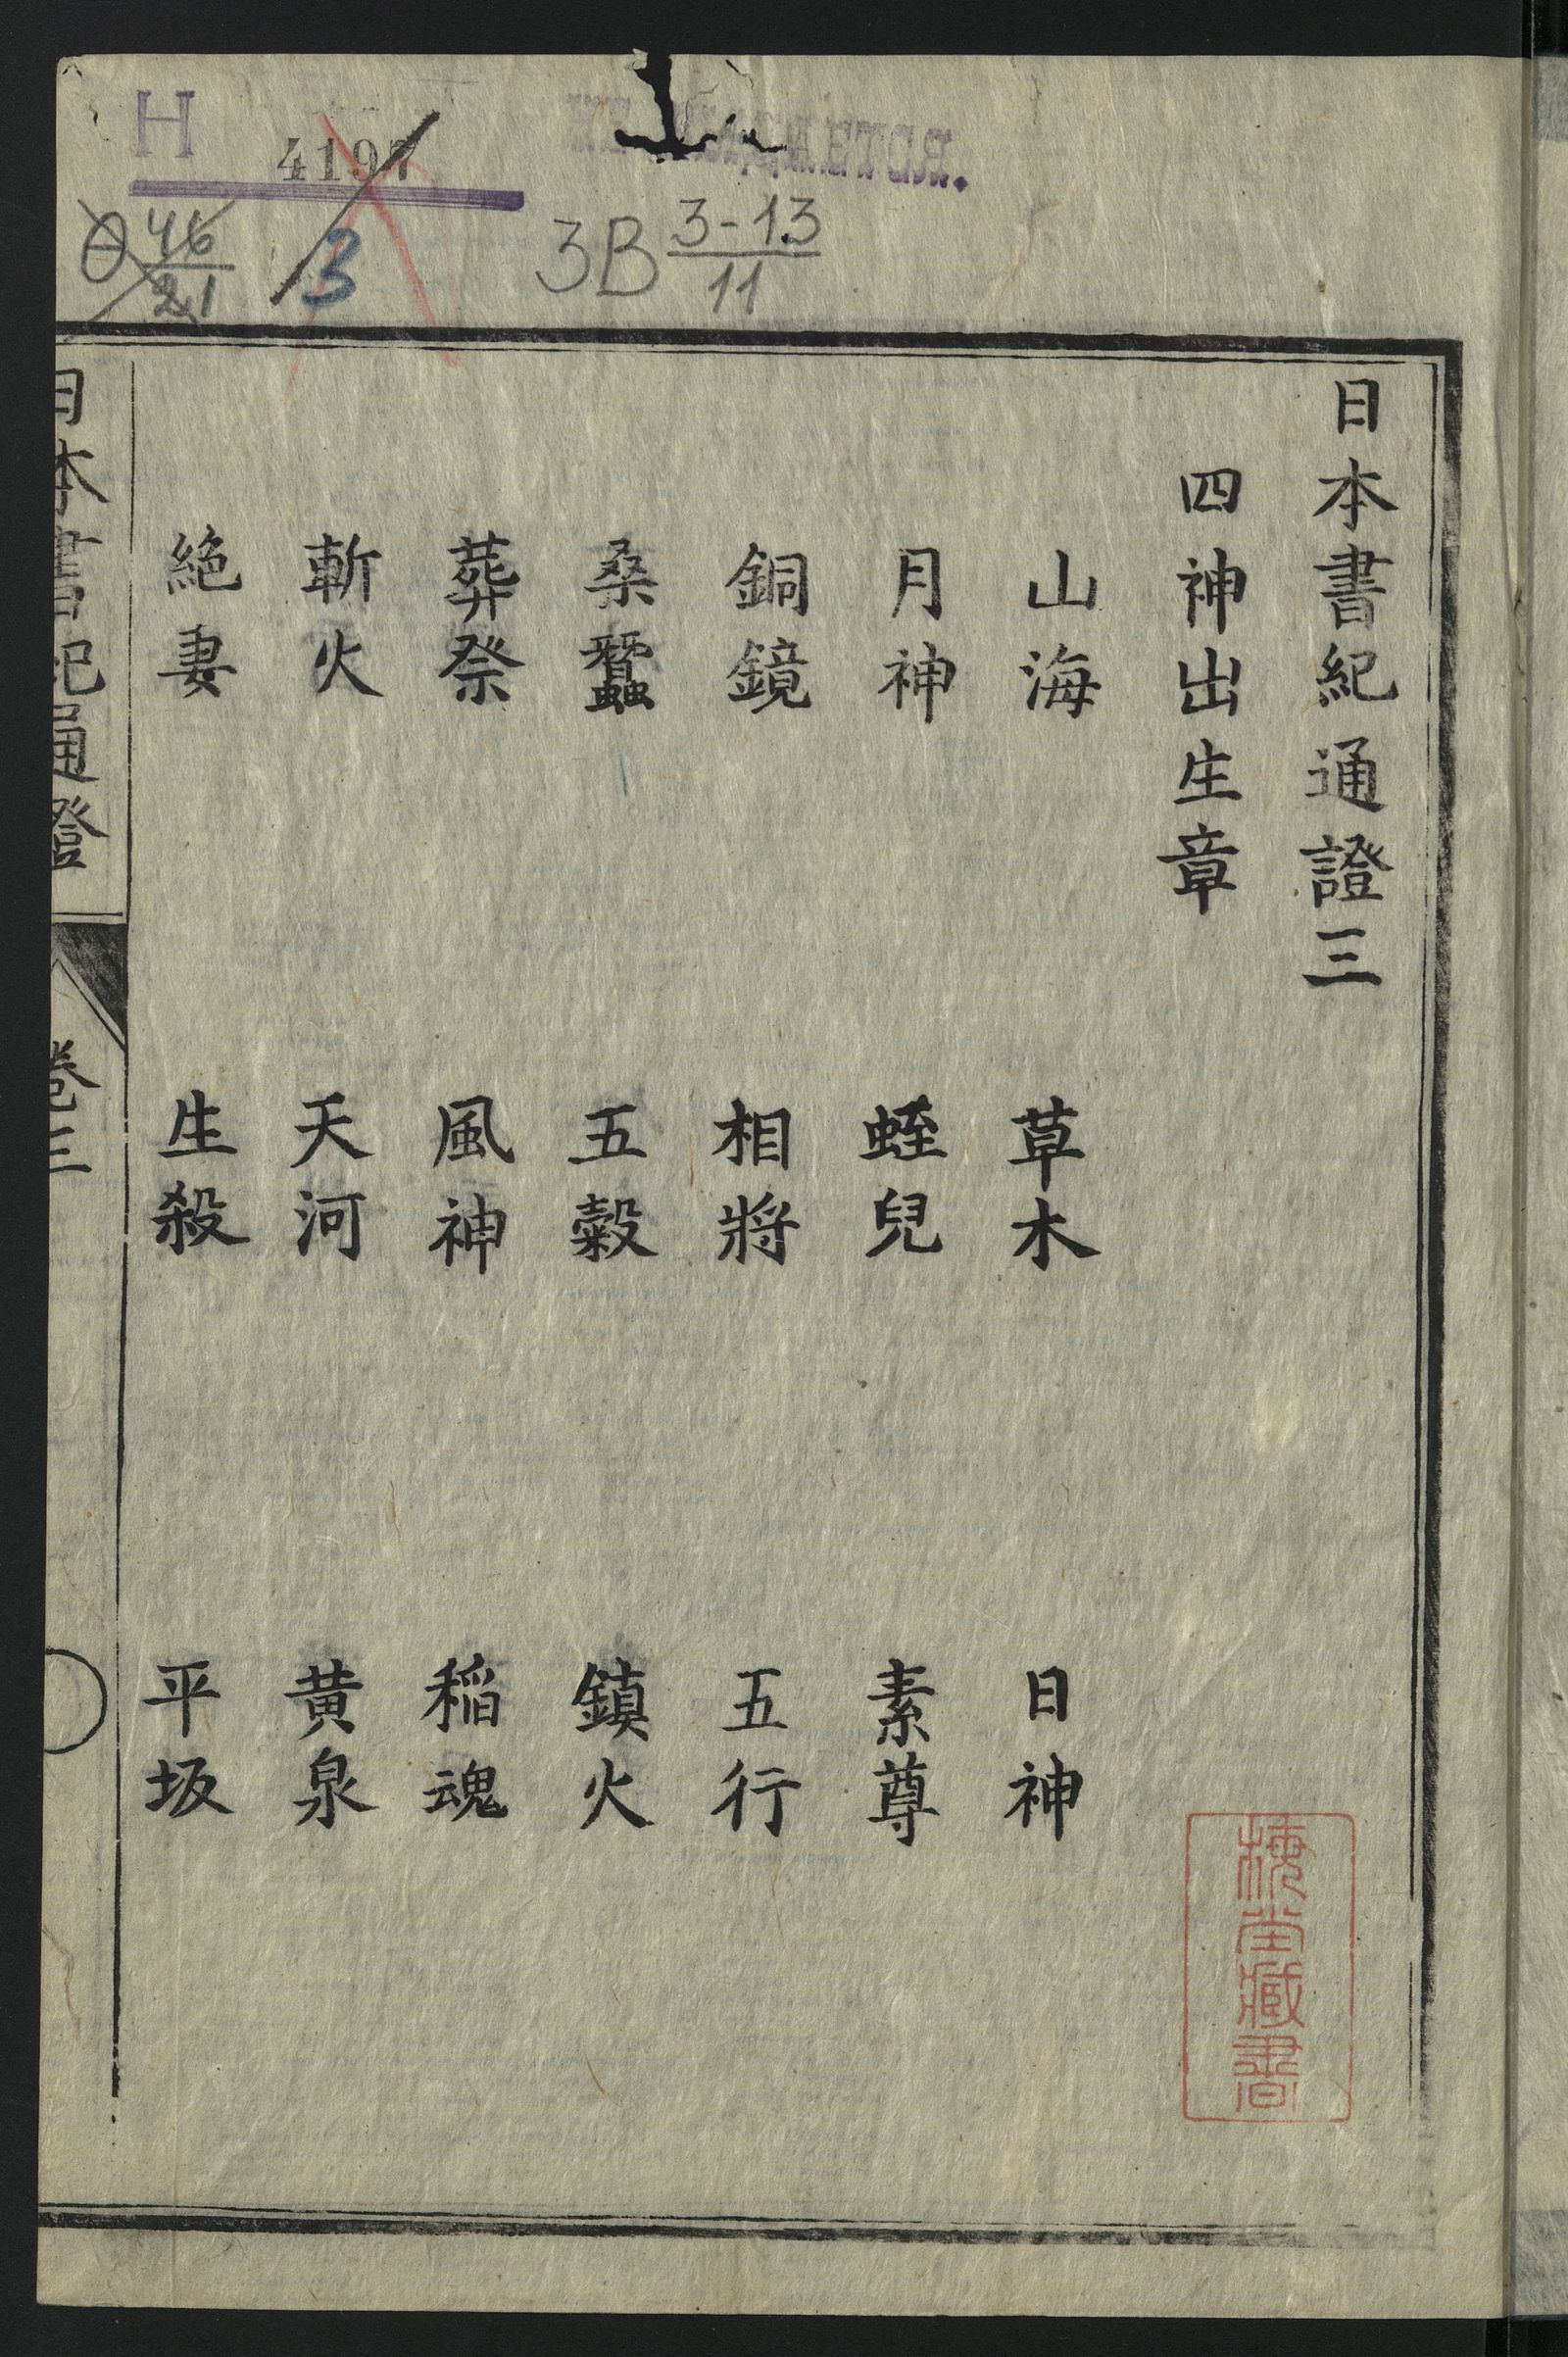 H
4197
Θ 46/21
3
3B 3-13/11
日本書紀通證三
四神出生章
山海 草木 日神
月神 蛭兒 素尊
銅鏡 相將 五行
桑蠶 五穀 鎮火
葬祭 風神 稲魂
斬火 天河 黄泉
絶妻 生殺 平坂
日本書紀通證 卷三
梅堂藏書